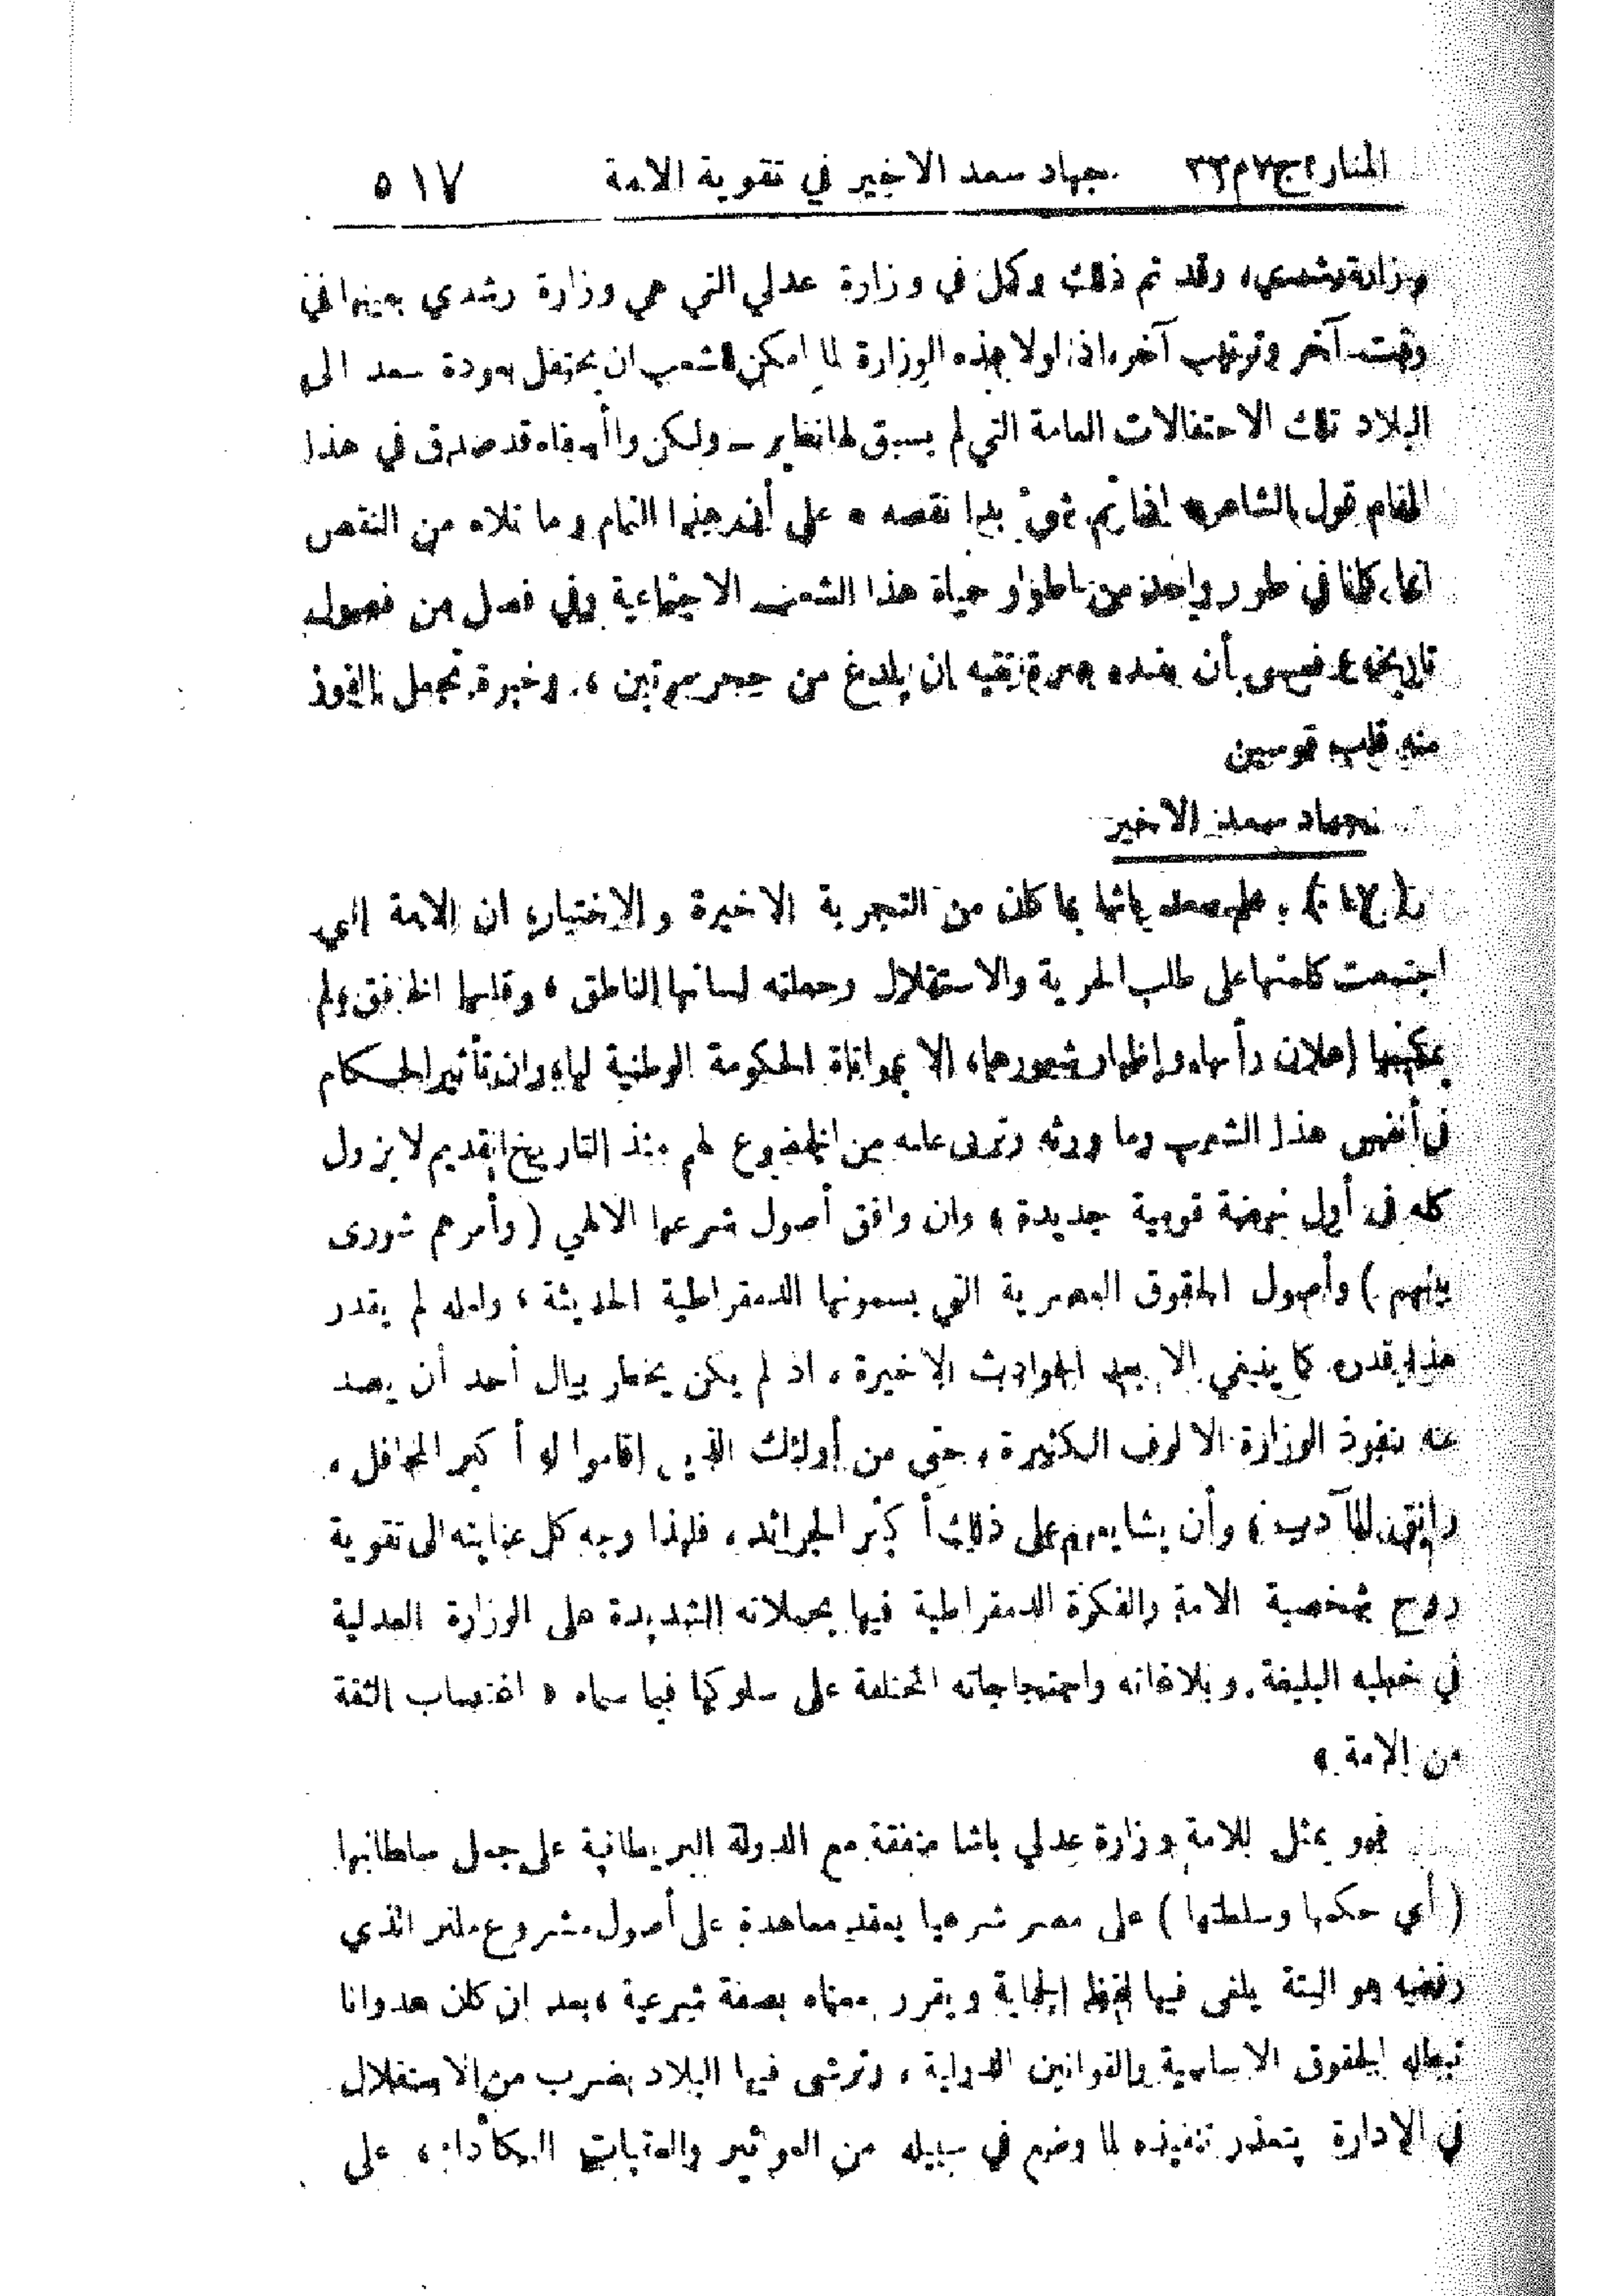 المنار: ج ٧ م ٢٢ جهاد سعد الاخير في تقوية الامة ٥١٧
وزارة رشدي، وقد تم ذلك وكمل في وزارة عدلي التي هي وزارة رشدي بعينها في
وقت آخر وترتيب آخر، اذ لولا هذه الوزارة لما امكن للشعب ان يحتفل بعودة سعد الى
البلاد تلك الاحتفالات العامة التي لم يسبق لها نظير ــ ولكن واأسفاه قد صدق في هذا
المقام قول الشاعر * اذا تم شيء بدا نقصه * على أن هذا التمام وما تلاه من النقص
انما كانا في طور واحد من اطوار حياة هذا الشعب الاجتماعية وفي فصل من فصول
تاريخه، فعسى أن يفيده عبرة تقيه ان يلدغ من جحر مرتين، وخبرة تجعل الفوز
منه قاب قوسين
جهاد سعد الاخير
(١٧) علم سعد باشا بما كان من التجربة الاخيرة والاختبار، ان الامة التي
اجتمعت كلمتها على طلب الحرية والاستقلال وجعلته لسانها الناطق، وقلبها الخافق، لم
يمكنها إعلان رأيها، وإظهار شعورها، الا بمواتاة الحكومة الوطنية لها، وان تأثير الحكام
في أنفس هذا الشعب وما ورثه وتربى عليه من الخضوع لهم منذ التاريخ القديم لا يزول
كله في أول نهضة قومية جديدة، وان وافق أصول شرعها الالهي (وأمرهم شورى
بينهم) وأصول الحقوق العصرية التي يسمونها الدمقراطية الحديثة، ولعله لم يقدر
هذا قدره كما ينبغي الا بعد الحوادث الاخيرة، اذ لم يكن يخطر ببال أحد أن يصد
عنه بنفوذ الوزارة الالوف الكثيرة، حتى من أولئك الذين اقاموا له أكبر المحافل،
وانق المآدب، وأن يشايعهم على ذلك أكثر الجرائد، فلهذا وجه كل عنايته الى تقوية
روح شخصية الامة والفكرة الدمقراطية فيها بحملاته الشديدة على الوزارة العدلية
في خطبه البليغة، وبلاغاته واحتجاجاته المختلفة على سلوكها فيما سماه « اغتصاب الثقة
من الامة »
فهو يمثل للامة وزارة عدلي باشا متفقة مع الدولة البريطانية على جعل سلطانها
(أي حكمها وسلطتها) على مصر شرعيا بعقد معاهدة على أصول مشروع ملنر الذي
رفضه هو البتة يلغى فيها لفظ الحماية ويقرر معناه بصفة شرعية، بعد ان كان عدوانا
تبطله الحقوق الاساسية والقوانين الدولية، وترشى فيها البلاد بضرب من الاستقلال
في الادارة يتعذر تنفيذه لما وضع في سبيله من العواثير والعقبات الكأداء، على